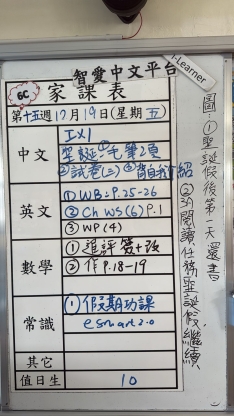 智愛中文平台
i-Learner
6C
家課表
第十五週12月19日(星期五)
中文
IX1
聖誕①毛筆2項
②試卷(三)③自我介紹
英文
① WB: P.25-26
② Ch WS(6) P.1
③ WP(4)
數學
① 追評簽+改
② 作 P.18-19
常識
① 假期功課
eSmart 2.0
其它
值日生
10
圖①聖誕假後第一天還書
②39閱讀任務聖誕假繼續